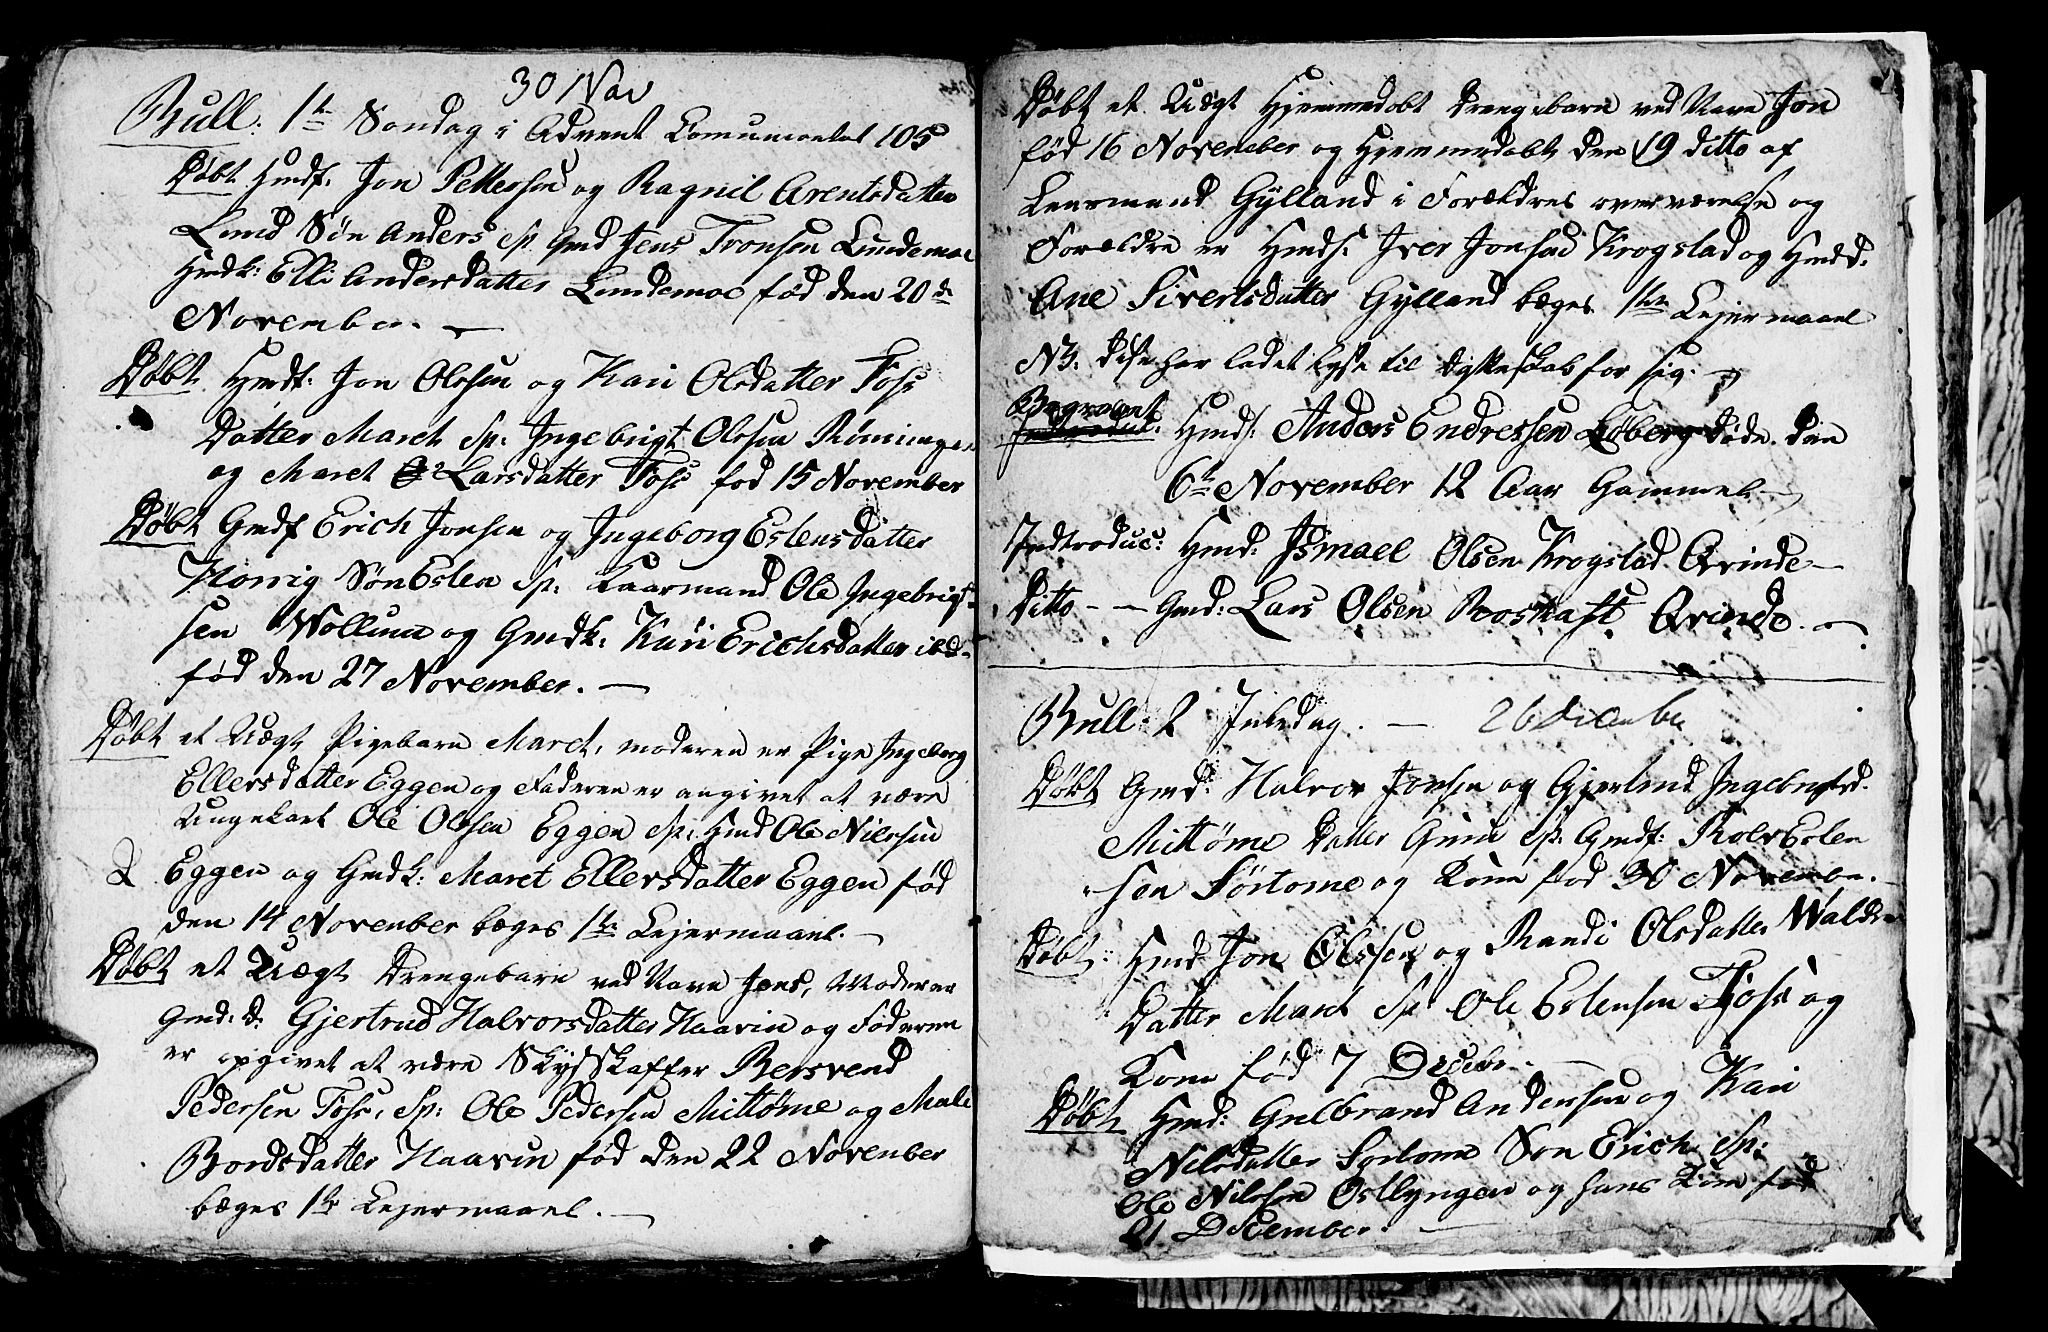 30 Nov
Bull: 1te Søndag i Advent Comunicantal 105
Døbt Hmdf: Jon Pettersen og Ragnil Arentsdatter
Lund Søn Anders Sp Gmd Jens Tronsen Lundemoe
Hmdk: Elli Andersdatter Lundemoe fød den 20de
November. —
Døbt Hmdf: Jon Olssen og Kari Olsdatter Foss
Datter Maret Sp: Ingebrigt Olssen Rønningen
og Maret Larsdatter Foss fød 15 November
Døbt Gmdf Erich Jonsen og Ingeborg Estensdatter
Horrig Søn Esten Sp: Laarmand Ole Ingebrigt-
sen Wollum og Gmdk: Kari Erichsdatter ibd-
fød den 27 November. —
Døbt et Uægt Pigebarn Maret, moderen er Pige Ingeborg
Ellersdatter Eggen og Faderen er angivet at være
Ungekarl Ole Olssen Eggen Sp: Hmd Ole Nilssen
Eggen og Gmdk: Maret Ellersdatter Eggen fød
den 14 November begges 1te Lejermaael. —
Døbt et Uægt Drengebarn ved Navn Jens, Moder er
Gmd: D: Gjertrud Halvorsdatter Haavin og Faderen
er opgivet at være Skydsskaffer Bersvend
Pedersen Foss, Sp: Ole Pedersen Mittøme og Mali
Bordsdatter Haavin fød den 22 November
begges 1te Lejermaael. —
Døbt et Uægt Hjemmedøbt Drengebarn ved Navn Jon
fød 16 November og Hjemmedøbt den 19 ditto af
Lensmand Gylland i Forældres overværelse og
Forældre er Hmds: Iver Jonsen Krogstad og Hmdd:
Ane Sivertsdatter Gylland begges 1te Lejermaael
NB: Disse har ladet lyse til Ægteskab for sig. —
Begravet Hmds: Anders Endressen Løberg døde den
6te November 12 Aar Gammel —
Indtroduc: Hmd: Ismael Olsen Krogstad Qvinde —
Ditto - - Gmd: Lars Olsen Rooskaft Qvinde. —
Bull: 2 Juledag. — 26 December
Døbt Gmd: Halvor Jonsen og Gjertrud Ingebrigtsd.
Mittøme Datter Guru Sp: Gmdf: Rolv Esten
sen Sørtøme og Kone fød 30 November.
Døbt: Hmd Jon Olssen og Randi Olsdatter Wald
Datter Maret Sp: Ole Estensen Foss og
Kone fød 7 Decebr. —
Døbt Hmd: Gulbrand Andersen og Kari
Nilsdatter Sørtøme Søn Erich Sp:
Ole Nilssen Ostlyngen og hans Kone fød
21 December. —